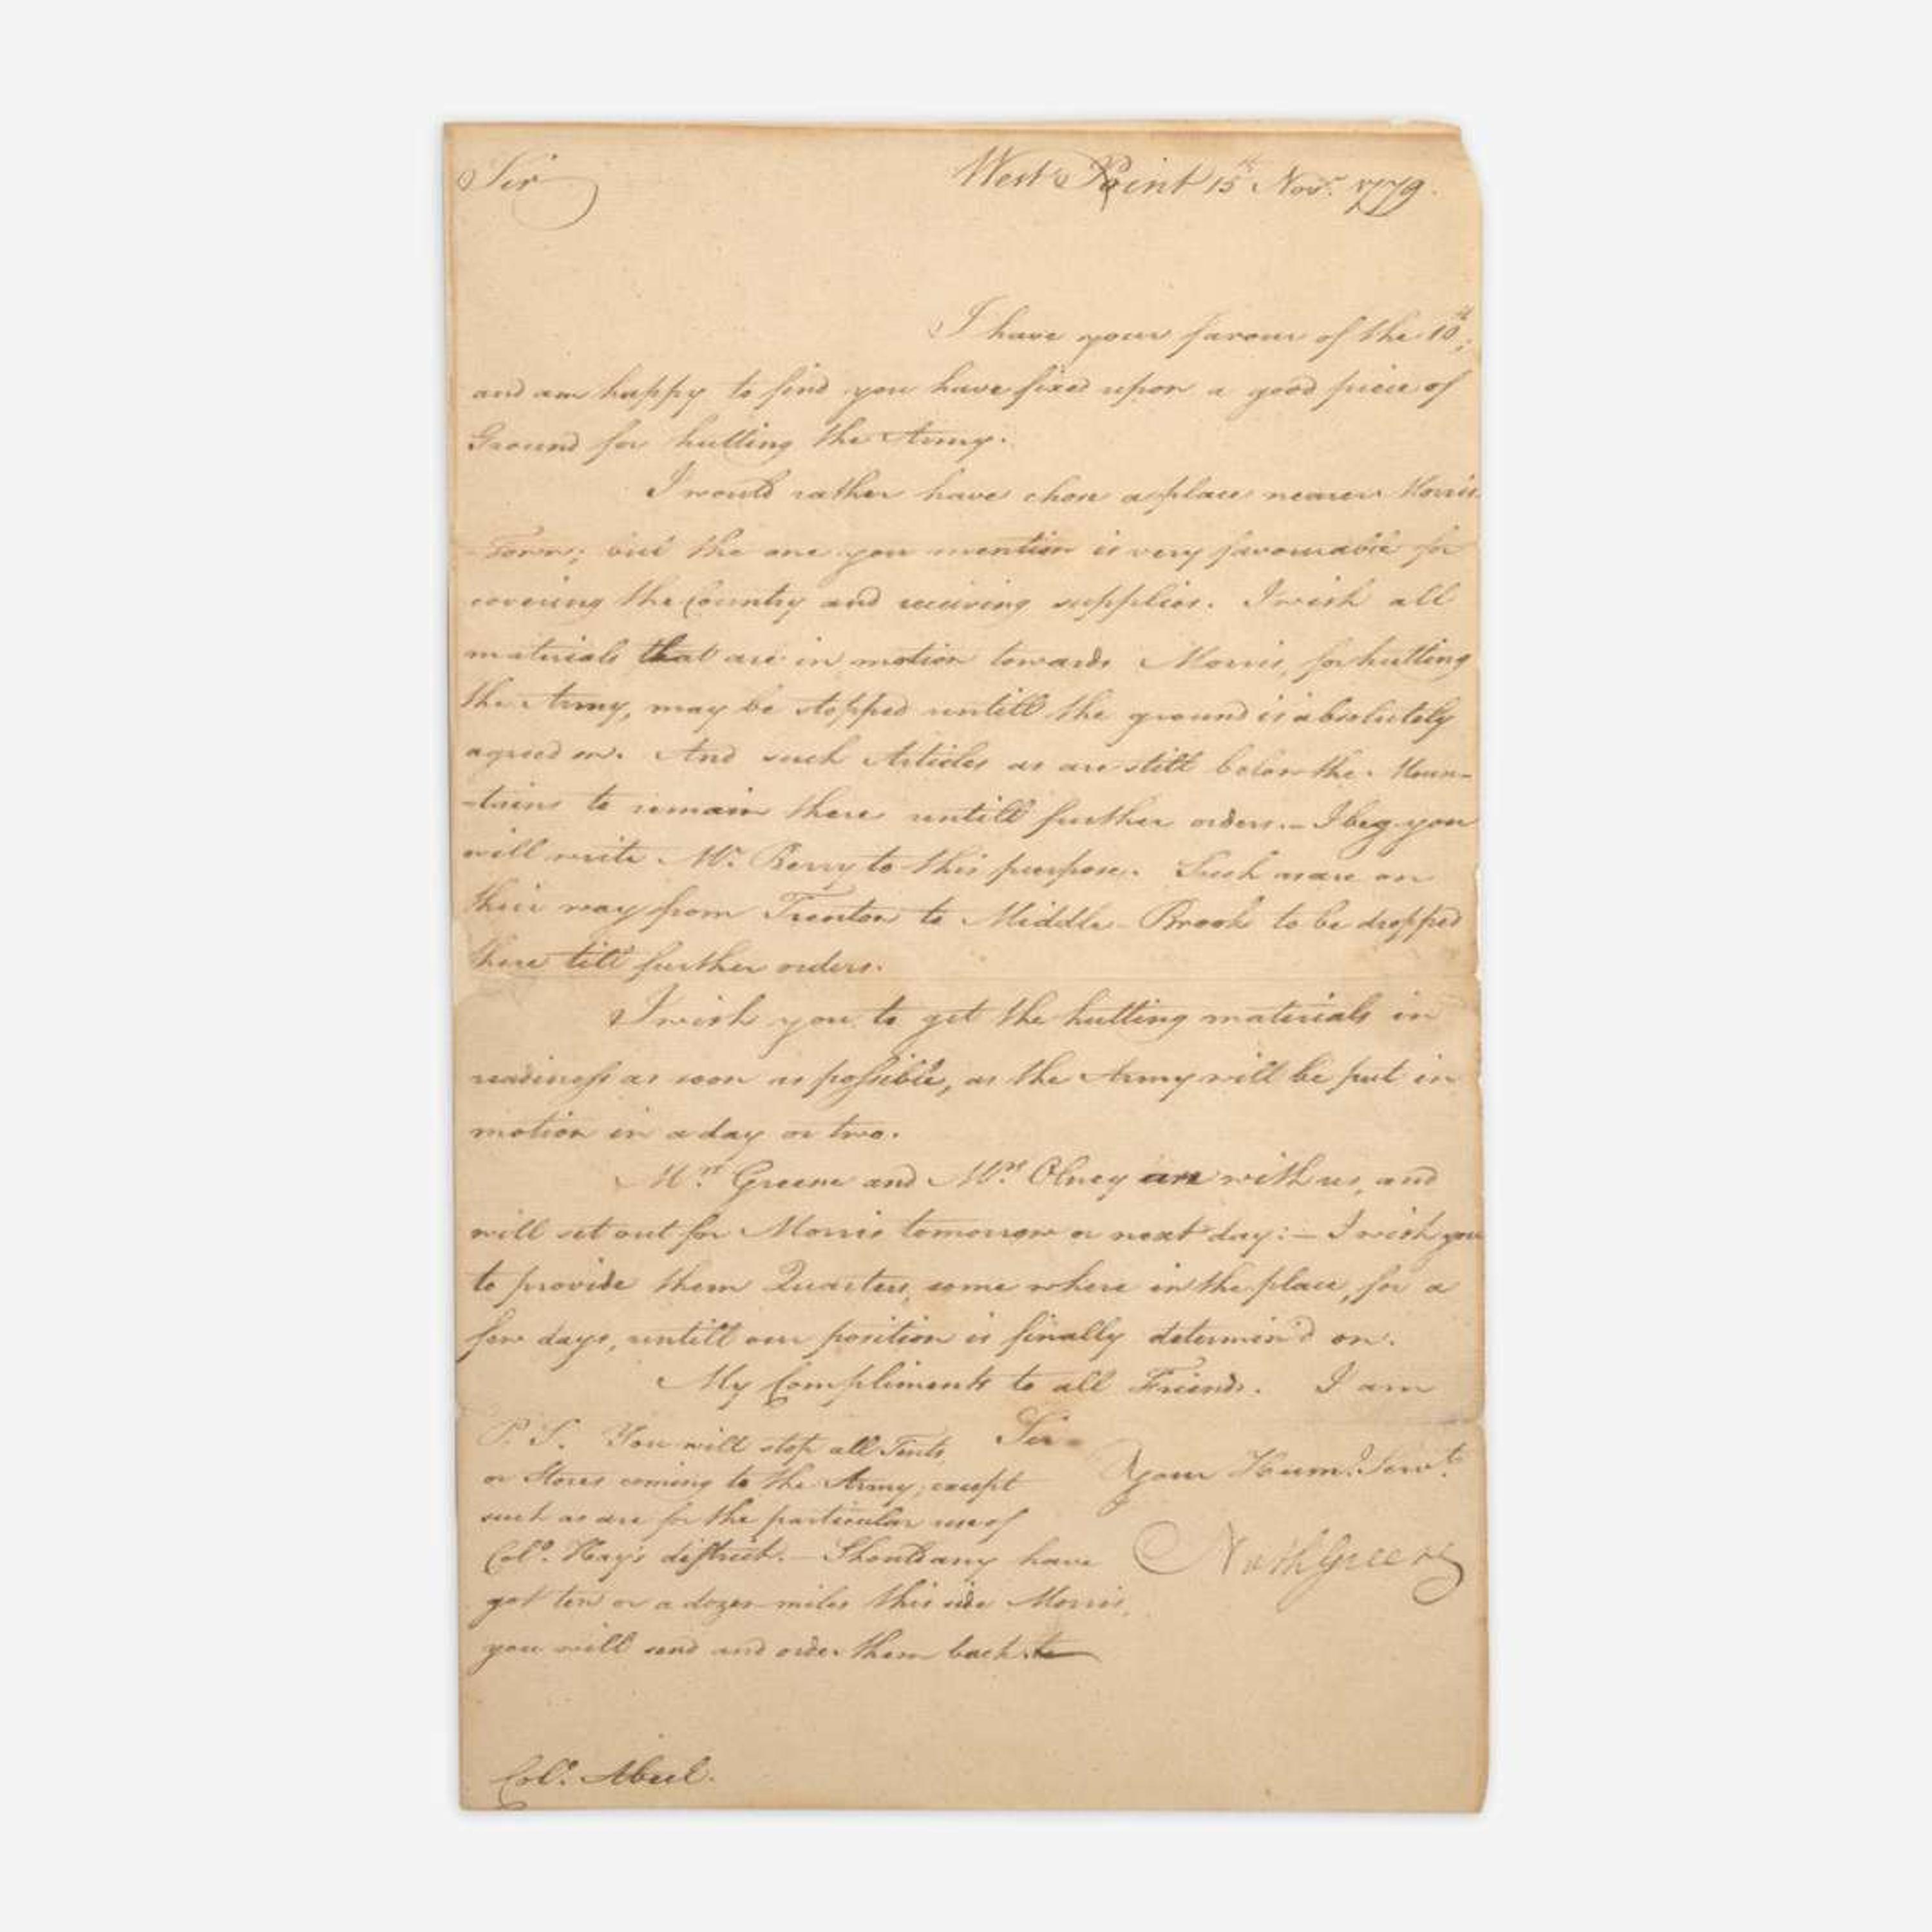 Sir West Point 15th Novr. 1779.
I have your favour of the 10th;
and am happy to find you have fixed upon a good piece of
Ground for hutting the Army.
I would rather have chose a place nearer Morris
-Town; but the one you mention is very favourable for
covering the Country and receiving supplies. I wish all
materials that are in motion towards Morris, for hutting
the Army, may be stopped untill the ground is absolutely
agreed on. And such Articles as are still below the Moun-
-tains to remain there untill further orders.– I beg you
will write Mr. Berry to this purpose. Such as are on
their way from Trenton to Middle-Brook to be dropped
there till further orders.
I wish you to get the hutting materials in
readiness as soon as possible, as the Army will be put in
motion in a day or two.
Mrs. Greene and Mrs. Olney are with us, and
will set out for Morris tomorrow or next day:– I wish you
to provide them Quarters, some where in the place, for a
few days, untill our position is finally determin'd on.
My Compliments to all Friends. I am
Sir
Your Huml. Servt.
Nath Greene
P. S. You will stop all Tents,
or Stores coming to the Army, except
such as are for the particular use of
Colo. Hay's district.– Should any have
got ten or a dozen miles this side Morris,
you will send and order them back to
Colo. Abeel.